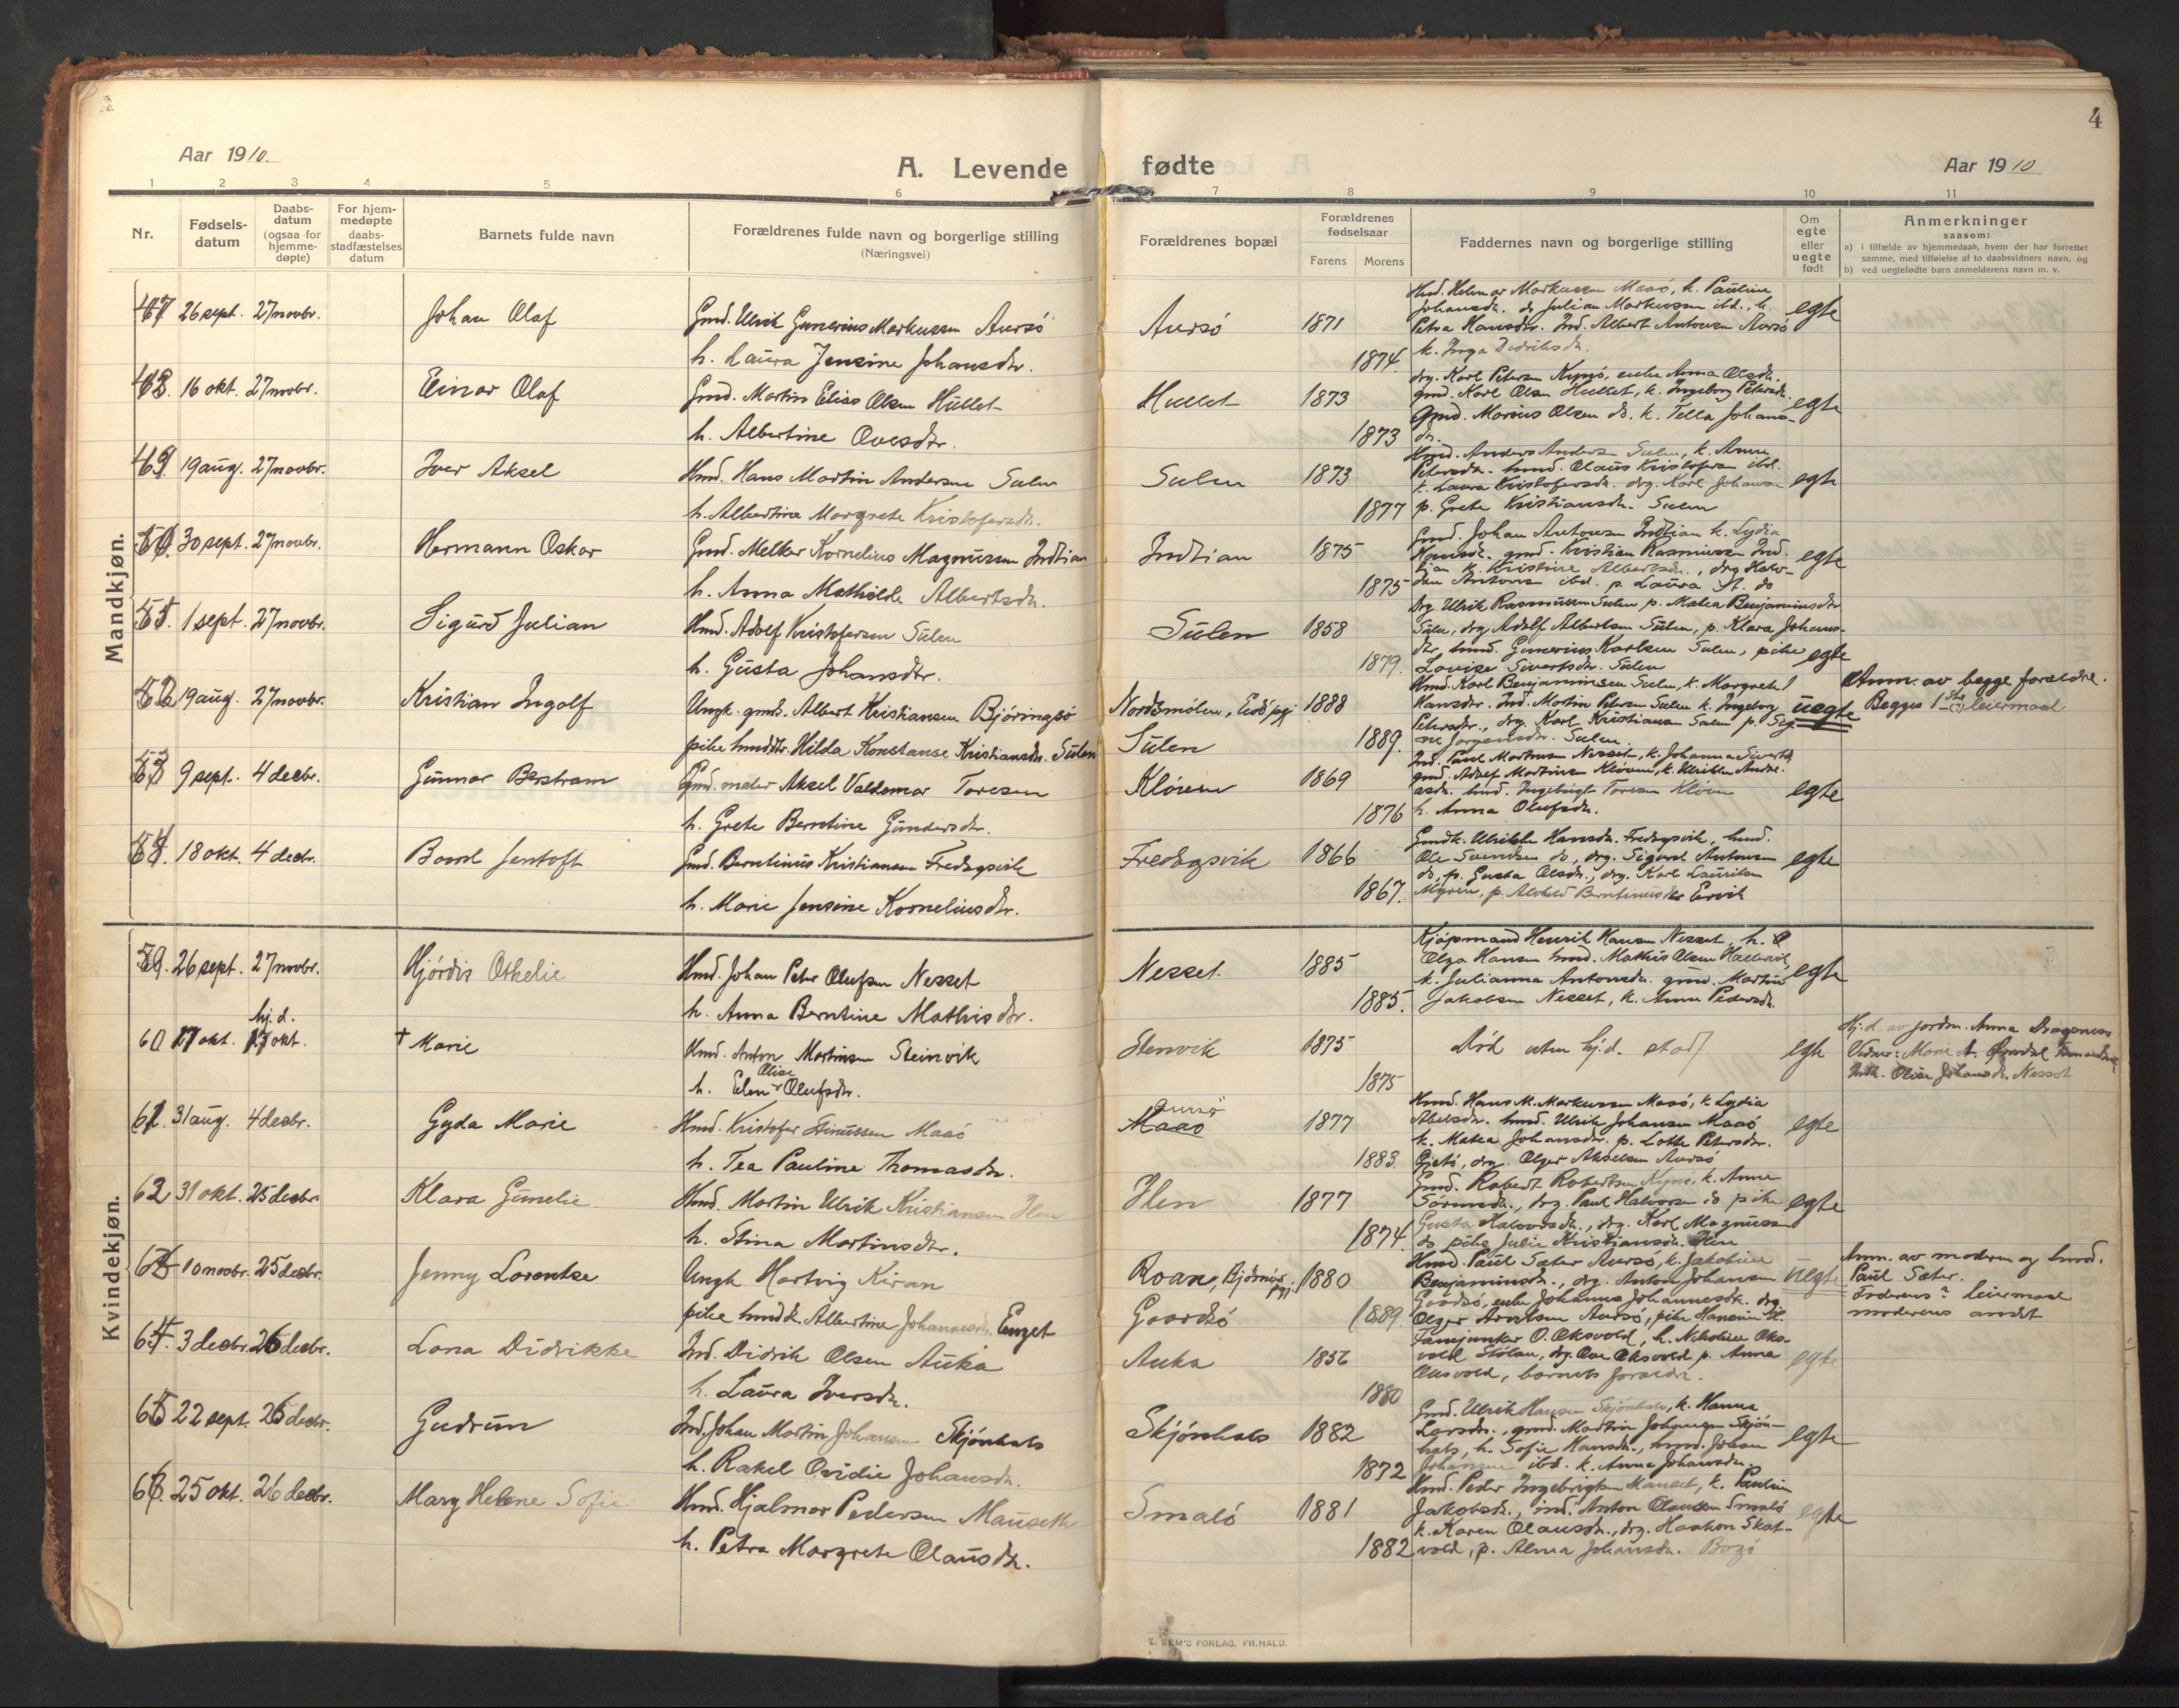 4
Aar 1910.
A. Levende fødte
Aar 1910
1 2 3 4 5 6 7 8 9 10 11
Nr.
Fødsels-
datum
Daabs-
datum
(ogsaa for
hjemme-
døpte)
For hjem-
medøpte
daabs-
stadfæstelses
datum
Barnets fulde navn
Forældrenes fulde navn og borgerlige stilling
(Næringsvei)
Forældrenes bopæl
Forældrenes
fødselsaar
Farens Morens
Faddernes navn og borgerlige stilling
Om
egte
eller
uegte
født
Anmerkninger
saasom:
a) i tilfælde av hjemmedaab, hvem der har forrettet
samme, med tilføielse af to daabsvidners navn, og
b) ved uegtefødte barn anmelderens navn m. v.
Mandkjøn.
26 sept. 27 novbr. Johan Olaf
Gmd. Ulrik Gunerius Markussen Aursö
h. Laura Jensine Johansdtr.
Aursö 1871
1874.
Hmd. Helmar Markussen Maasö, k. Pauline
Johansdr. do Julian Markussen ibd., k.
Petra Hansdtr. Ind. Albert Antonsen Aursö
k. Inga Didriksdr.
egte
16 okt. 27 novbr. Einar Olaf
Gmd. Martin Elias Olsen Hullet
h. Albertine Ovesdtr.
Hullet 1873
1873
drg. Karl Petersen Kynö, enke Anna Olsdr.
gmd. Karl Olsen Hullet, k. Ingeborg Petersdr.
Gmd. Marius Olsen do. k. Tella Johans-
dr.
egte
19 aug. 27 novbr. Iver Aksel
Hmd. Hans Martin Andersen Sulen
h. Albertine Margrete Kristofersdr.
Sulen 1873
1877
Hmd. Anders Andersen Sulen, k. Anne
Petersdr. hmd. Olaus Kristofersen ibd.
k. Laura Kristofersdr. drg. Karl Johansen
p. Grete Kristiansdr. Sulen
egte
30 sept. 27 novbr. Hermann Oskar
Gmd. Melker Kornelius Magnussen Indtian
h. Anna Mathilde Albertsdr.
Indtian 1875
1875
Gmd. Johan Antonsen Indtian k. Lydia
Hansdr. gmd. Kristian Rasmussen Ind-
tian k. Kristine Albertsdr., drg Halv-
dan Antons ibd. p. Laura A. do
egte
1 sept. 27 novbr. Sigurd Julian
Hmd. Adolf Kristofersen Sulen
h. Gusta Johansdtr.
Sulen 1858
1879.
drg. Ulrik Rasmussen Sulen p. Matea Benjaminsdtr
Sulen, drg Adolf Albertsen Sulen, p. Klara Johans-
dtr, hmd. Gunerius Karlsen Sulen, pike
Lovise Sivertsdtr. Sulen
egte
19 aug. 27 novbr. Kristian Ingolf
Ungk. gmds. Albert Kristiansen Björingsö
pike hmddtr. Hilda Konstanse Kristiansdr. Sulen
Nordsmölen, Eids pgj 1888
Sulen 1889.
Hmd. Karl Benjaminsen Sulen, k. Margrete
Hansdtr. Ind. Martin Petersen Sulen k. Ingeborg
Petersdtr., drg. Karl Kristiansen Sulen p. Sig-
ne Jörgensdr. Sulen.
uegte
Anm. av begge forældre.
Begges 1ste leiermaal
9 sept. 4 decbr. Gunnar Berstram
Gmd. maler Aksel Valdemar Toresen
h. Grete Berntine Gundersdtr.
Klöven 1869
1876
Ind. Paul Martinsen Nesset, k. Johanna Sivertsd.
gmd. Adolf Martinsen Klöven, k. Ulrikke Andre-
asdr. hmd. Ingebrigt Toresen Klöven
h. Anna Olufsdr.
egte
18 okt. 4 decbr. Baard Jentoft
Gmd. Berntinus Kristiansen Fredagsvik
h. Marie Jensine Korneliusdtr.
Fredagsvik 1866
1867.
Gmdk. Ulrikke Hansdr. Fredagsvik, hmd.
Ole Svendsen do, drg. Sigurd Antonsen
do, p. Gusta Olsdr., drg. Karl Lauritsen
Myren, p. Alvhild Berntinusdtr Ervik
egte
Kvindekjøn.
59. 26 sept. 27 novbr. Hjördis Othelie
Hmd. Johan Peter Olufsen Nesset
h. Anna Berntine Mathisdtr.
Nesset. 1885
1885.
Kjöpmand Henrik Hansen Nesset, h.
Olga Hansen hmd. Mathis Olsen
k. Julianna Antonsdr. gmd. Martin
Jakobsen Nesset, k. Anna Pedersdr.
egte
hj. d.
60 17 okt. 17 okt. † Marie
Hmd. Anton Martinsen Steinvik
h. Elen Olise Olufsdr.
Stenvik 1875
1875
Död uten hj.d. stadf
egte
Hj.d. av jordm. Anna Dragsness
Vidner: Marie A.
Olise Johansdr. Nesset
61. 31 aug. 4 decbr. Gyda Marie
Hmd. Kristofer Stinussen Maasö
h. Tea Pauline Thomasdr.
Aursö
Maasö 1877
1883.
Hmd. Hans M. Markussen Maasö, k. Lydia
Abelsdr. hmd. Ulrik Johansen Maasö
k. Matea Johansdr. p. Lotte Petersdr.
Gjetö, drg. Olger Akselsen Aursö
egte
62 31 okt. 25 decbr. Klara Gunelie
Hmd. Martin Ulrik Kristiansen Ilen
h. Stina Martinsdtr.
Ilen 1877
1874.
Gmd. Robert Robertsen Kynö, k. Anne
Sörensdr., drg. Paul Halvorsen do pike
Gusta Halvorsdr., drg. Karl Magnussen
do pike Julie Kristiansdr. Ilen
egte
63 10 novbr. 25 decbr. Jenny Lorentse
Ungk Hartvig Kiran
pike hmddr. Albertine Johannesdr. Enget
Roan, Björnör pgj. 1880
Gaardsö 1889.
Hmd. Paul Sæter Aursö, k. Jakobine
Benjaminsdr., drg. Anton Johansen
Gaardsö, enke Johanna Johannesdr. drg
Olger Arntsen Aursö, pike
uegte
Anm. av moderen og hmd.
Paul Sæter.
Faderens ? leiermaal
moderens andet
64 3 decbr. 26 decbr. Lona Didrikke
Ind. Didrik Olsen Auka
h. Laura Iversdr.
Auka 1856
1880
Fanejunker O. Oksvold, h. Nikoline Oks-
vold Stölan, drg. Ove Oksvold p. Anna
Oksvold, barnets forældr.
egte
65 22 sept. 26 decbr. Gudrun
Ind. Johan Martin Johansen Skjönhals
h. Rakel Ovidie Johansdr.
Skjönhals 1882
1872
Gmd. Ulrik Hansen Skjönhals, k. Hanna
Larsdr., gmd. Martin Johansen Skjön-
hals, h. Sofie Hansdr., hmd. Johan
Johansen ibd. k. Anna Johansdr.
egte
66. 25 okt. 26 decbr. Mary Helene Sofie
Hmd. Hjalmar Pedersen Mauseth
h. Petra Margrete Olausdr.
Smalö 1881
1882
Hmd. Peder Ingebrigtsen Mauset, k. Pauline
Jakobsdr., ind. Anton Olaussen Smalö
k. Karen Olausdr., drg. Haakon Skat-
vold, p. Alma Johansdr. Bogö
egte
E. SEM'S FORLAG, FR.HALD.